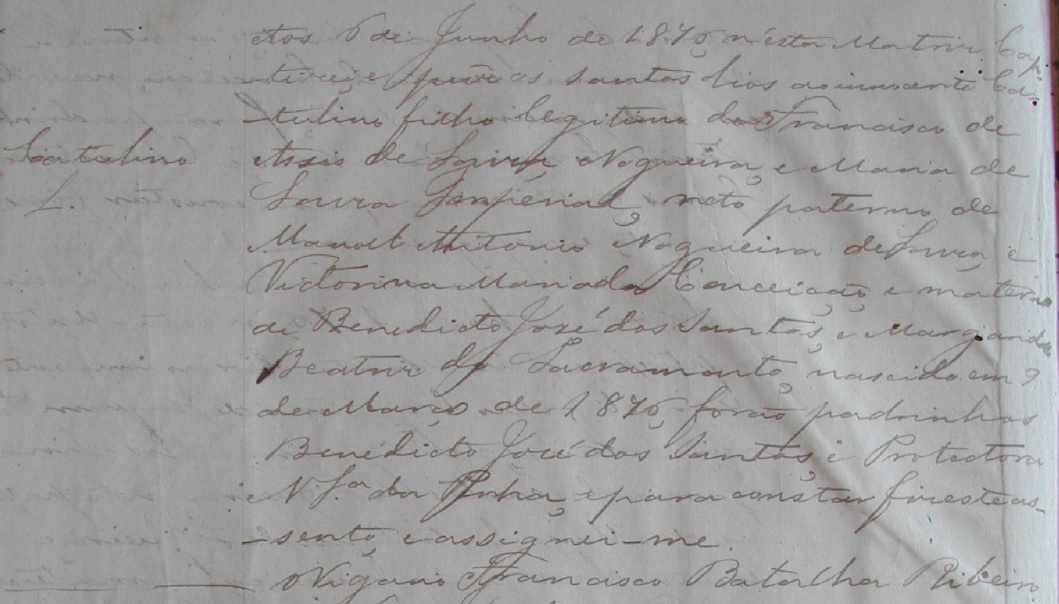 Aos 6 de Junho de 1876 n'esta Matriz bap-
tizei e puz os santos olios ao innocente Ca-
tulino filho legitimo de Francisco de
Catulino
Assis de Nogueira e Maria de
L.
Imperial, neto paterno de
Manoel Antonio Nogueira de e
Victorina Maria da Conceição, e materno
de Benedicto José dos Santos, e Margarida
Beatriz do Sacramento, nascido em 9
de Março de 1876, forão padrinhos
Benedicto José dos Santos, e Protectora
N S.ra da Penha, e para constar fiz este as-
-sento, e assignei-me.
O Vigario Francisco Batalha Ribeiro